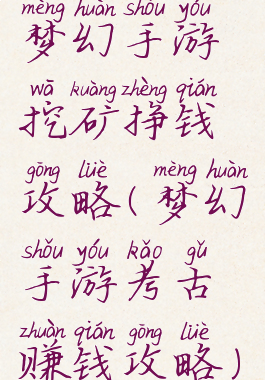 mèng huàn shǒu yóu
梦幻手游
wā kuàng zhèng qián
挖矿挣钱
gōng lüè mèng huàn
攻略(梦幻
shǒu yóu kǎo gǔ
手游考古
zhuàn qián gōng lüè
赚钱攻略)